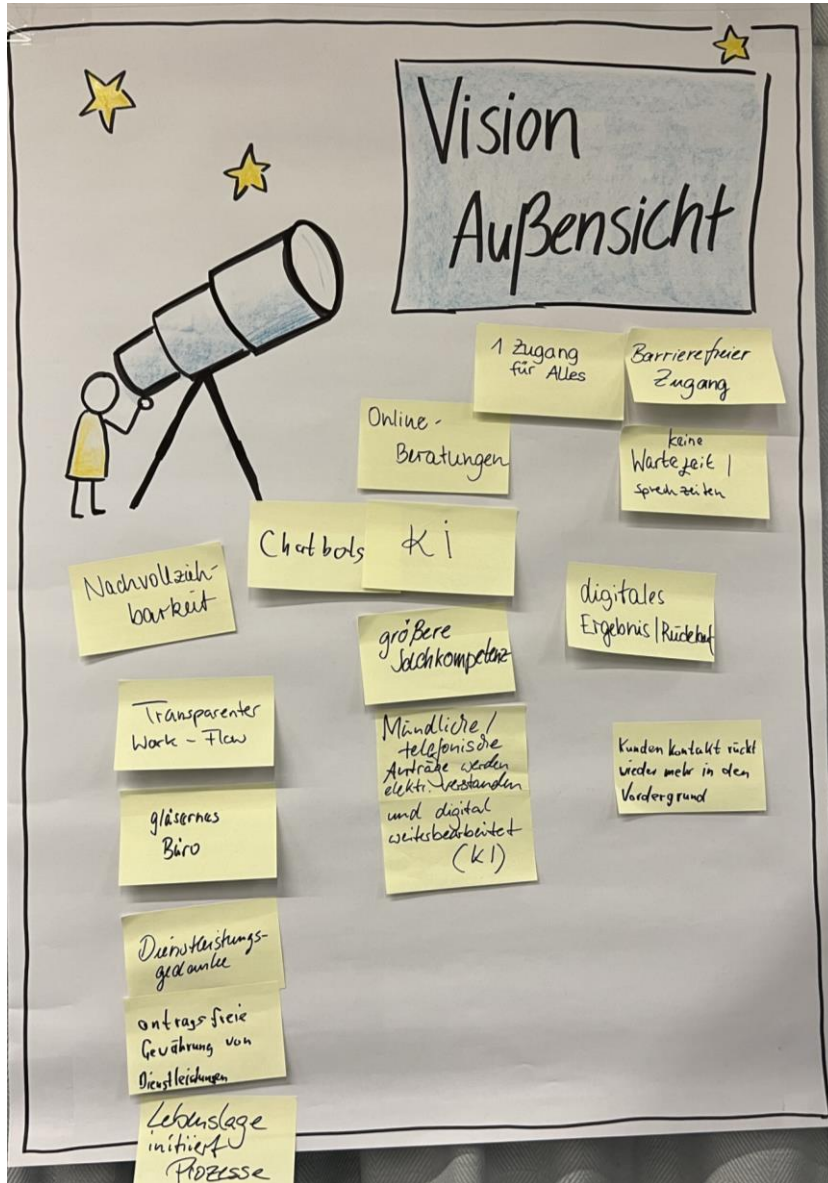 Vision
Außensicht
1 Zugang
für Alles
Barrierefreier
Zugang
Online-
Beratungen
keine
Wartezeit /
sprechzeiten
Chatbots
KI
Nachvollzieh-
barkeit
digitales
Ergebnis / Rückruf
größere
Fachkompetenz
Transparenter
Work-Flow
Mündliche /
telefonische
Aufträge werden
elektr. verstanden
und digital
weiterbearbeitet
(KI)
Kundenkontakt rückt
wieder mehr in den
Vordergrund
gläsernes
Büro
Dienstleistungs-
gedanke
antragsfreie
Gewährung von
Dienstleistungen
Lebenslage
initiiert
Prozesse